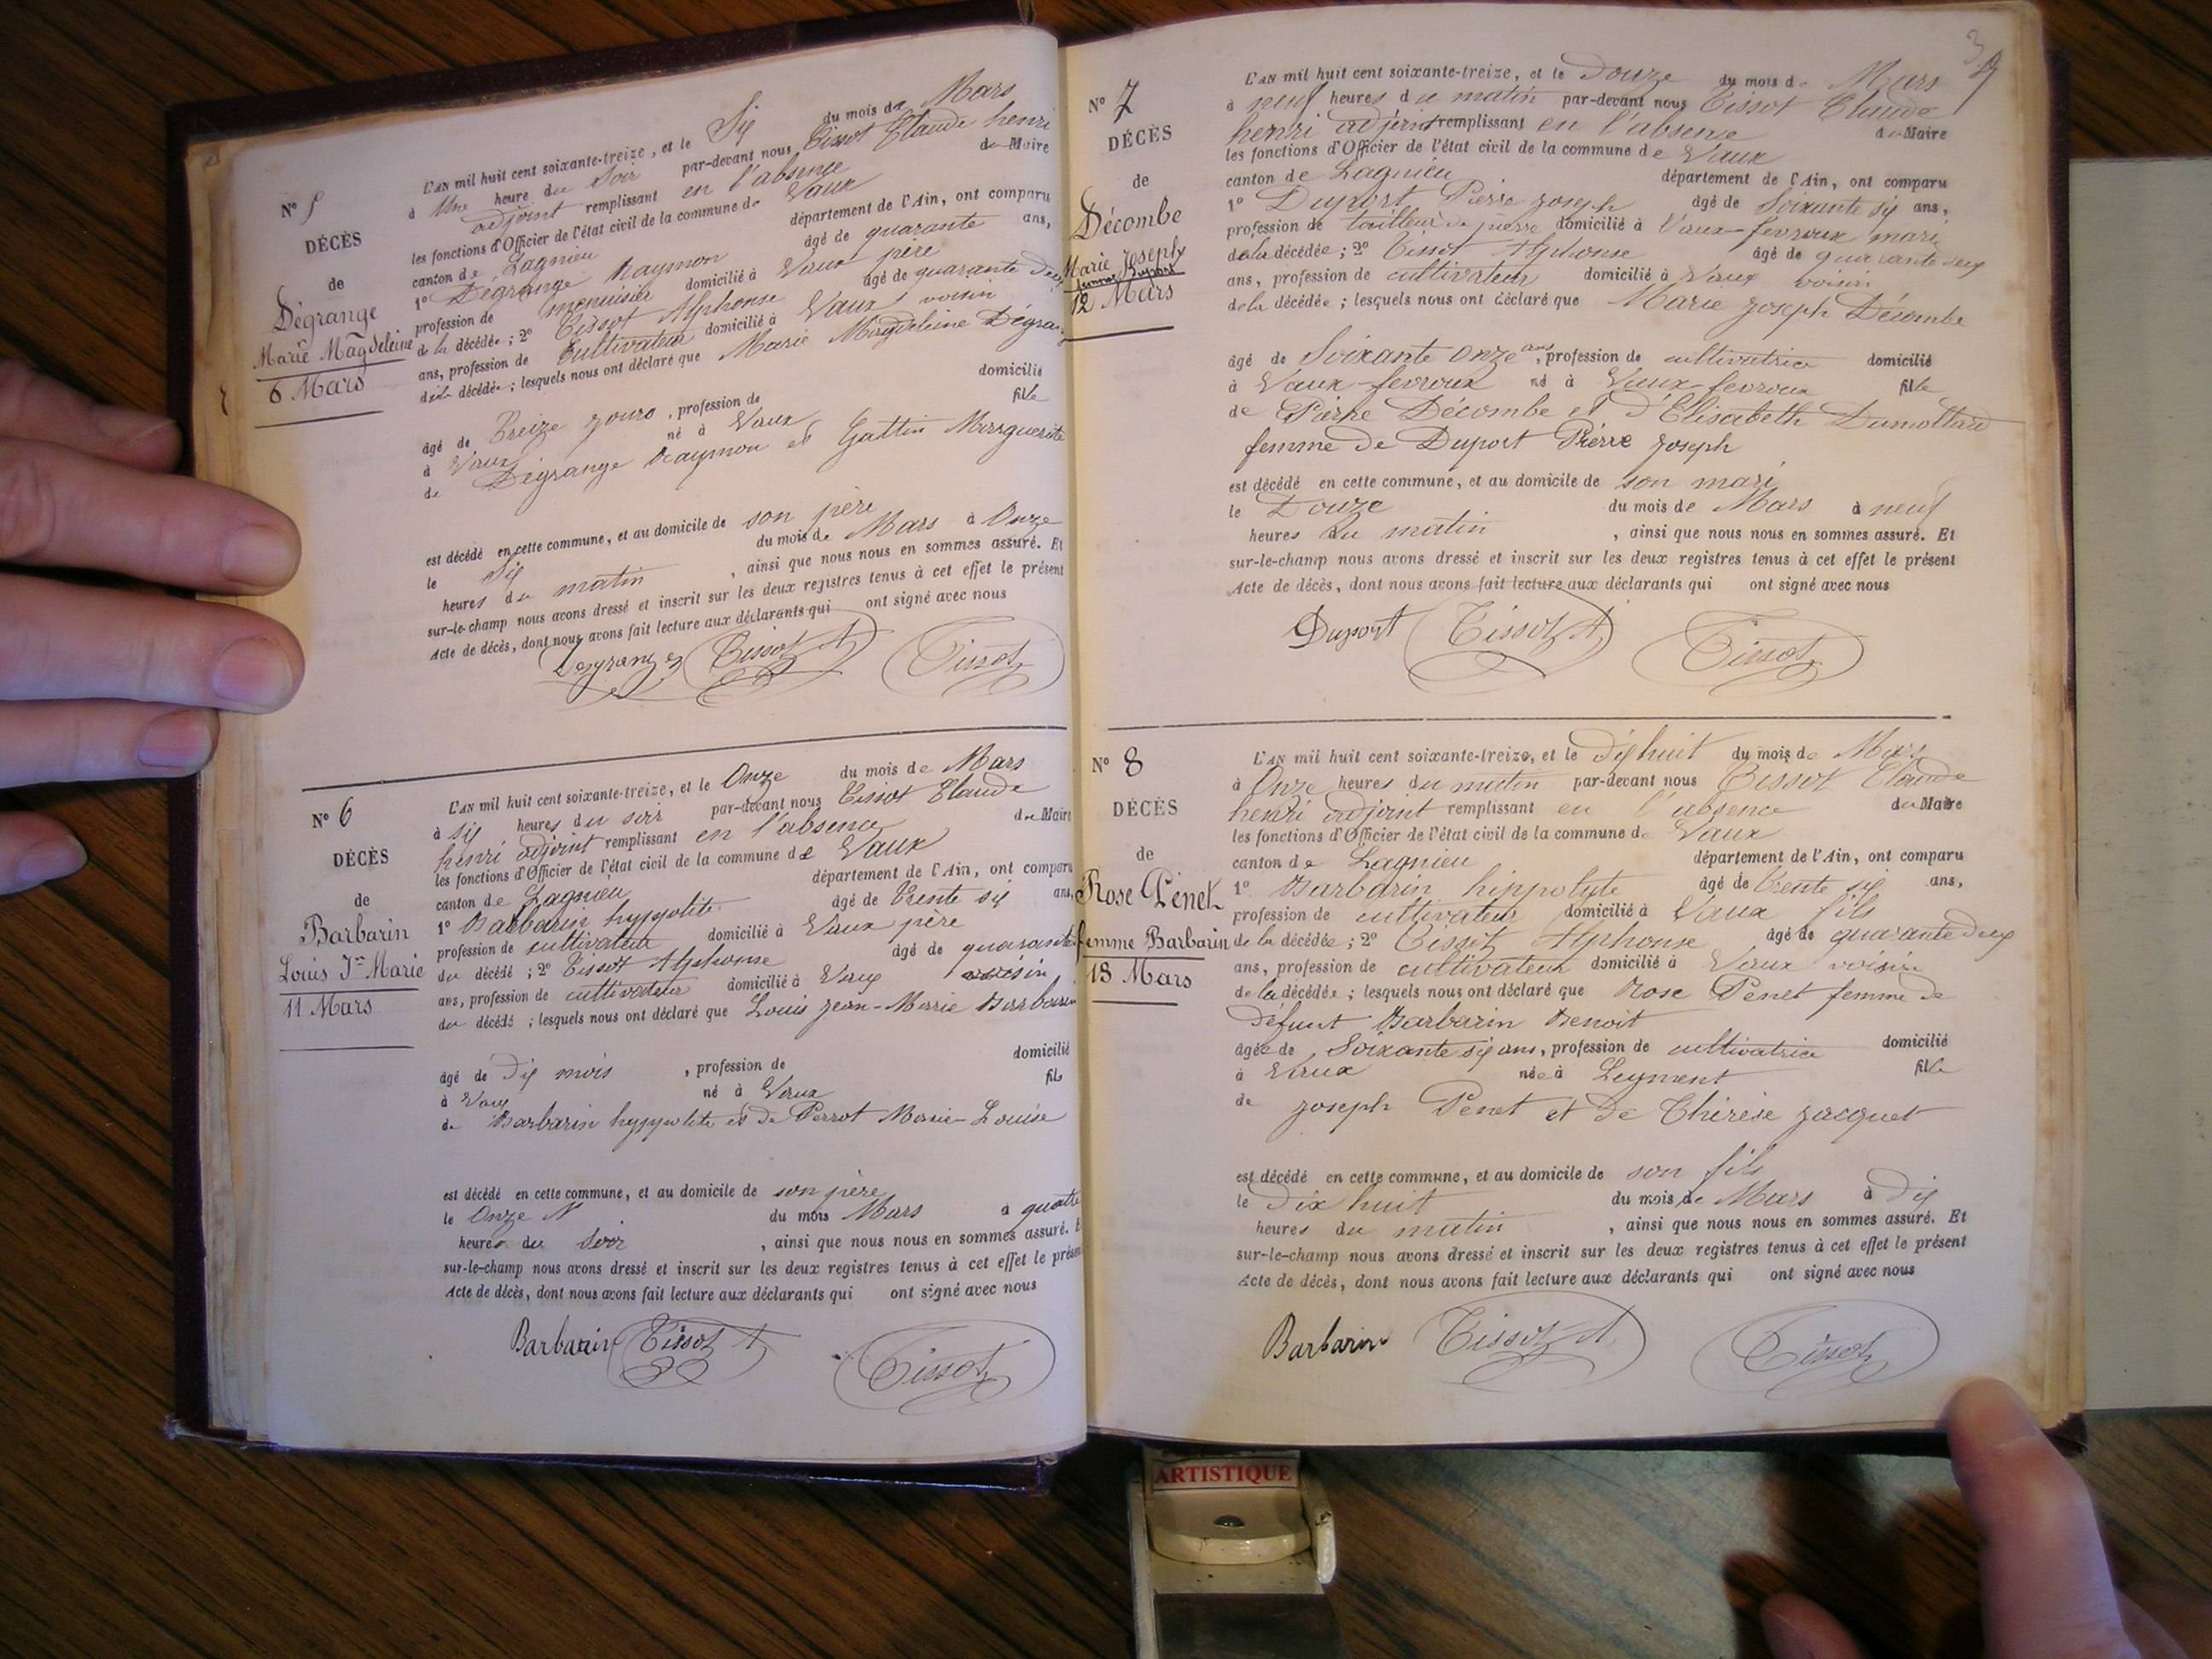 N° 5
DÉCÈS
de
Dégrange
Marie Magdeleine
6 Mars
L'AN mil huit cent soixante-treize, et le Six du mois de Mars
à Une heure du Soir par-devant nous Tissot Claude henri
adjoint remplissant en l'absence du Maire
les fonctions d'Officier de l'état civil de la commune de Vaux
canton de Lagnieu département de l'Ain, ont comparu
1° Dégrange Raymon âgé de quarante ans,
profession de menuisier domicilié à Vaux père
de la décédée ; 2° Tissot Alphonse âgé de quarante deux
ans, profession de Cultivateur domicilié à Vaux voisin
de la décédée ; lesquels nous ont déclaré que Marie Magdeleine Dégrange
âgé de Treize jours , profession de domicilié
à Vaux né à Vaux fille
de Dégrange Raymon et Gattin Marguerite
est décédé en cette commune, et au domicile de son père
le Six du mois de Mars à Onze
heures du matin , ainsi que nous nous en sommes assuré. Et
sur-le-champ nous avons dressé et inscrit sur les deux registres tenus à cet effet le présent
Acte de décès, dont nous avons fait lecture aux déclarants qui ont signé avec nous
Tissot A Tissot
N° 6
DÉCÈS
de
Barbarin
Louis Jn Marie
11 Mars
L'AN mil huit cent soixante-treize, et le Onze du mois de Mars
à six heures du soir par-devant nous Tissot Claude
henri adjoint remplissant en l'absence du Maire
les fonctions d'Officier de l'état civil de la commune de Vaux
canton de Lagnieu département de l'Ain, ont comparu
1° Barbarin hyppolite âgé de Trente six ans,
profession de cultivateur domicilié à Vaux père
du décédé ; 2° Tissot Alphonse âgé de quarante
ans, profession de cultivateur domicilié à Vaux voisin
du décédé ; lesquels nous ont déclaré que Louis jean-Marie Barbarin
âgé de dix mois , profession de domicilié
à Vaux né à Vaux fils
de Barbarin hyppolite et de Perrot Marie-Louise
est décédé en cette commune, et au domicile de son père
le Onze du mois Mars à quatre
heures du Soir , ainsi que nous nous en sommes assuré. E
sur-le-champ nous avons dressé et inscrit sur les deux registres tenus à cet effet le présen
Acte de décès, dont nous avons fait lecture aux déclarants qui ont signé avec nous
Barbarin Tissot A Tissot
N° 7
DÉCÈS
de
Décombe
Marie Joseph
femme Duport
12 Mars
L'AN mil huit cent soixante-treize, et le Douze du mois de Mars
à neuf heures du matin par-devant nous Tissot Claude
henri adjoint remplissant en l'absence du Maire
les fonctions d'Officier de l'état civil de la commune de Vaux
canton de Lagnieu département de l'Ain, ont comparu
1° Duport Pierre joseph âgé de Soixante six ans,
profession de tailleur de pierre domicilié à Vaux-fevroux mari
de la décédée ; 2° Tissot Alphonse âgé de quarante deux
ans, profession de cultivateur domicilié à Vaux voisin
de la décédée ; lesquels nous ont déclaré que Marie joseph Décombe
âgé de Soixante onze ans, profession de cultivatrice domicilié
à Vaux-fevroux né à Vaux-fevroux fille
de Pierre Décombe et d'Elisabeth Dumollard
femme de Duport Pierre joseph
est décédé en cette commune, et au domicile de son mari
le Douze du mois de Mars à neuf
heures du matin , ainsi que nous nous en sommes assuré. Et
sur-le-champ nous avons dressé et inscrit sur les deux registres tenus à cet effet le présent
Acte de décès, dont nous avons fait lecture aux déclarants qui ont signé avec nous
Duport Tissot A Tissot
N° 8
DÉCÈS
de
Rose Pénet
femme Barbarin
18 Mars
L'AN mil huit cent soixante-treize, et le dix huit du mois de Mars
à Onze heures du matin par-devant nous Tissot Claude
henri adjoint remplissant en l'absence du Maire
les fonctions d'Officier de l'état civil de la commune de Vaux
canton de Lagnieu département de l'Ain, ont comparu
1° Barbarin hippolyte âgé de Trente six ans,
profession de cultivateur domicilié à Vaux fils
de la décédée ; 2° Tissot Alphonse âgé de quarante deux
ans, profession de cultivateur domicilié à Vaux voisin
de la décédée ; lesquels nous ont déclaré que Rose Penet femme de
défunt Barbarin Benoit
âgée de Soixante six ans, profession de cultivatrice domicilié
à Vaux née à Leyment fille
de joseph Penet et de Thérèse jacquet
est décédé en cette commune, et au domicile de son fils
le Dix huit du mois de Mars à Dix
heures du matin , ainsi que nous nous en sommes assuré. Et
sur-le-champ nous avons dressé et inscrit sur les deux registres tenus à cet effet le présent
Acte de décès, dont nous avons fait lecture aux déclarants qui ont signé avec nous
Barbarin Tissot A Tissot
ARTISTIQUE